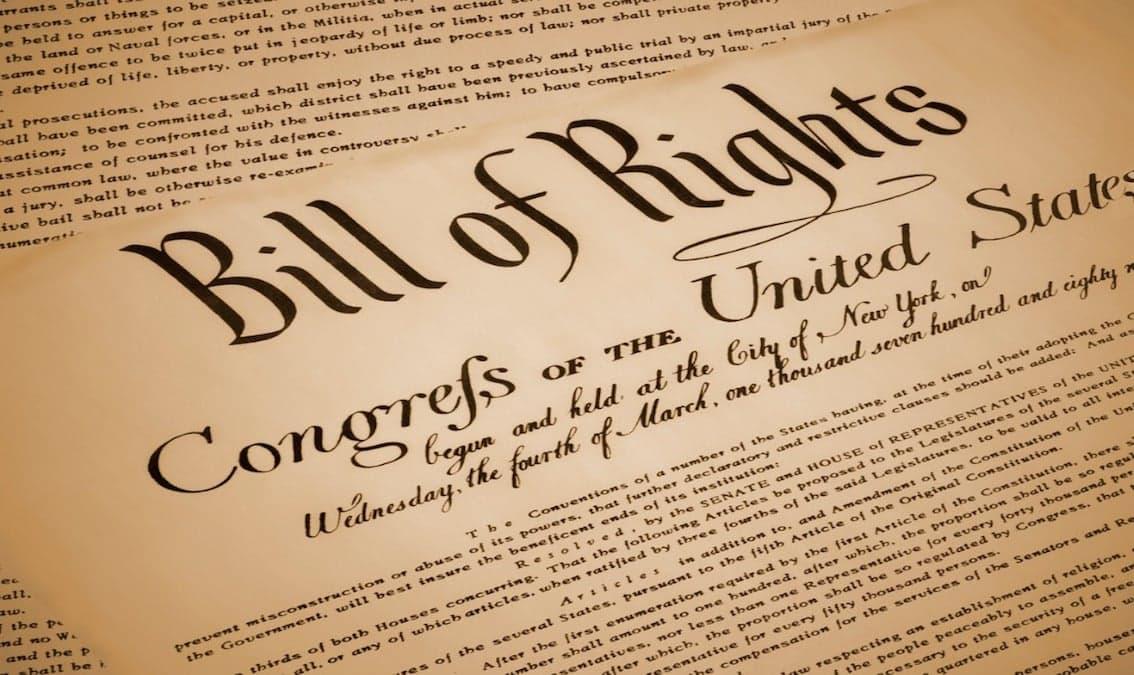 rrants shall
persons or things to be seized
be held to answer for a capital, or otherwise
the land or Naval forces, or in the Militia, when in actual
same offence to be twice put in jeopardy of life or limb; nor shall be
deprived of life, liberty, or property, without due process of law; nor shall private property
al prosecutions, the accused shall enjoy the right to a speedy and public trial by an impartial jury of the
all have been committed, which district shall have been previously ascertained by law,
sation; to be confronted with the witnesses against him; to have compulsor
ssistance of counsel for his defence.
at common law, where the value in controversy
a jury, shall be otherwise re-exam
ive bail shall not be
numerati
Bill of Rights
Congreſs OF THE United States
begun and held at the City of New York, on
Wednesday, the fourth of March, one thousand seven hundred and eighty
The Conventions of a number of the States having, at the time of their adopting the
prevent misconstruction or abuse of its powers, that further declaratory and restrictive clauses should be added: And as
the Government, will best insure the beneficent ends of its institution:
Resolved, by the SENATE and HOUSE of REPRESENTATIVES of the UNIT
thirds of both Houses concurring. That the following Articles be proposed to the Legislatures of the several
all, or any of which articles, when ratified by three fourths of the said Legislatures, to be valid to all inte
Articles in addition to, and Amendment of the Constitution of the Un
res of the several States, pursuant to the fifth Article of the Original Constitution.
After the first enumeration required by the first Article of the Constitution, there
mber shall amount to one hundred, after which, the proportion shall be so regul
sentatives, nor less than one Representative for every forty thousand per
after which, the proportion shall be so regulated by Congress, that
esentative for every fifty thousand persons.
the compensation for the services of the Senators and Re
law respecting an establishment of religion,
the people peaceably to assemble, an
ecessary to the security of a free
quartered in any house,
persons, house
obable ca
all.
aw.
of the p
and no W
and the p
shall be i